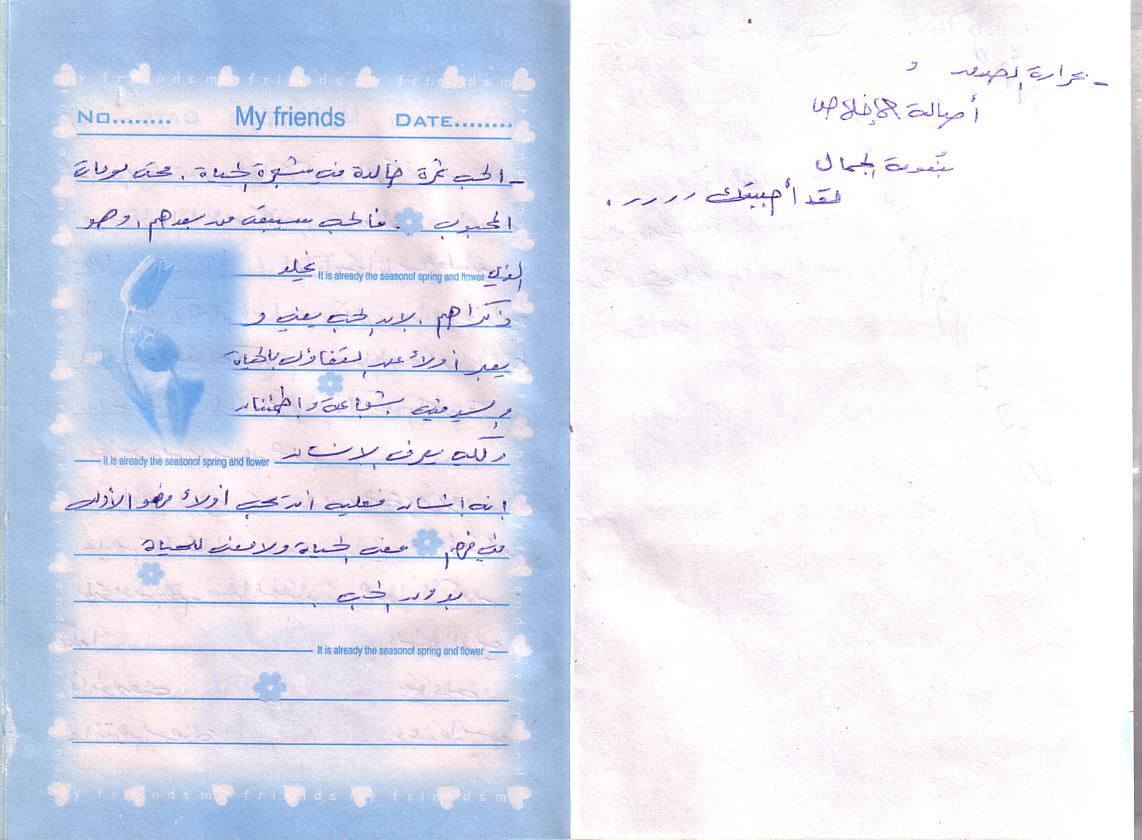 My friends
No........ My friends DATE........
- الحب ثمرة خالدة من شجرة الحياة . حتى لومات
المحبوب . فالحب سيبقى من بعدهم ، وهو
الذي It is already the seasonof spring and flower يخلد
ذكراهم . لان الحب يعني و
يعبر أولاً عن التفاؤل بالحياة
و السير فيه بشجاعة واطمئنان
ولكي يعرف الانسان It is already the seasonof spring and flower
انه انسان فعليه أن يحب أولاً فهو الأول
في فهم معنى الحياة ولا معنى للحياة
بدون الحب
It is already the seasonof spring and flower
my friends my friends my friends
- بحرارة الصدق و
أصالة الإخلاص
بنعومة الجمال
لقد أحببتك ، ، ، ، .